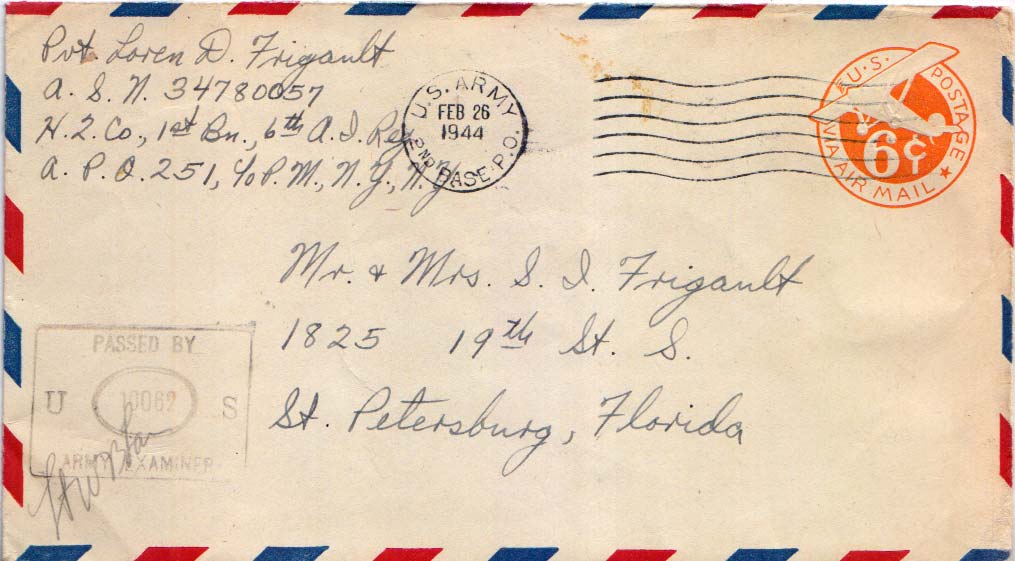 Pvt. Loren D. Frigault
A. S. N. 34780057
H. 2. Co., 1st Bn., 6th A. I. Reg
A. P. O. 251, c/o P. M., N. Y., N. Y.
U.S. ARMY
FEB 26
1944
2ND BASE P.O.
U.S. POSTAGE
6¢
VIA AIR MAIL
Mr. & Mrs. S. I. Frigault
1825 19th St. S.
St. Petersburg, Florida
PASSED BY
U 10062 S
ARMY EXAMINER